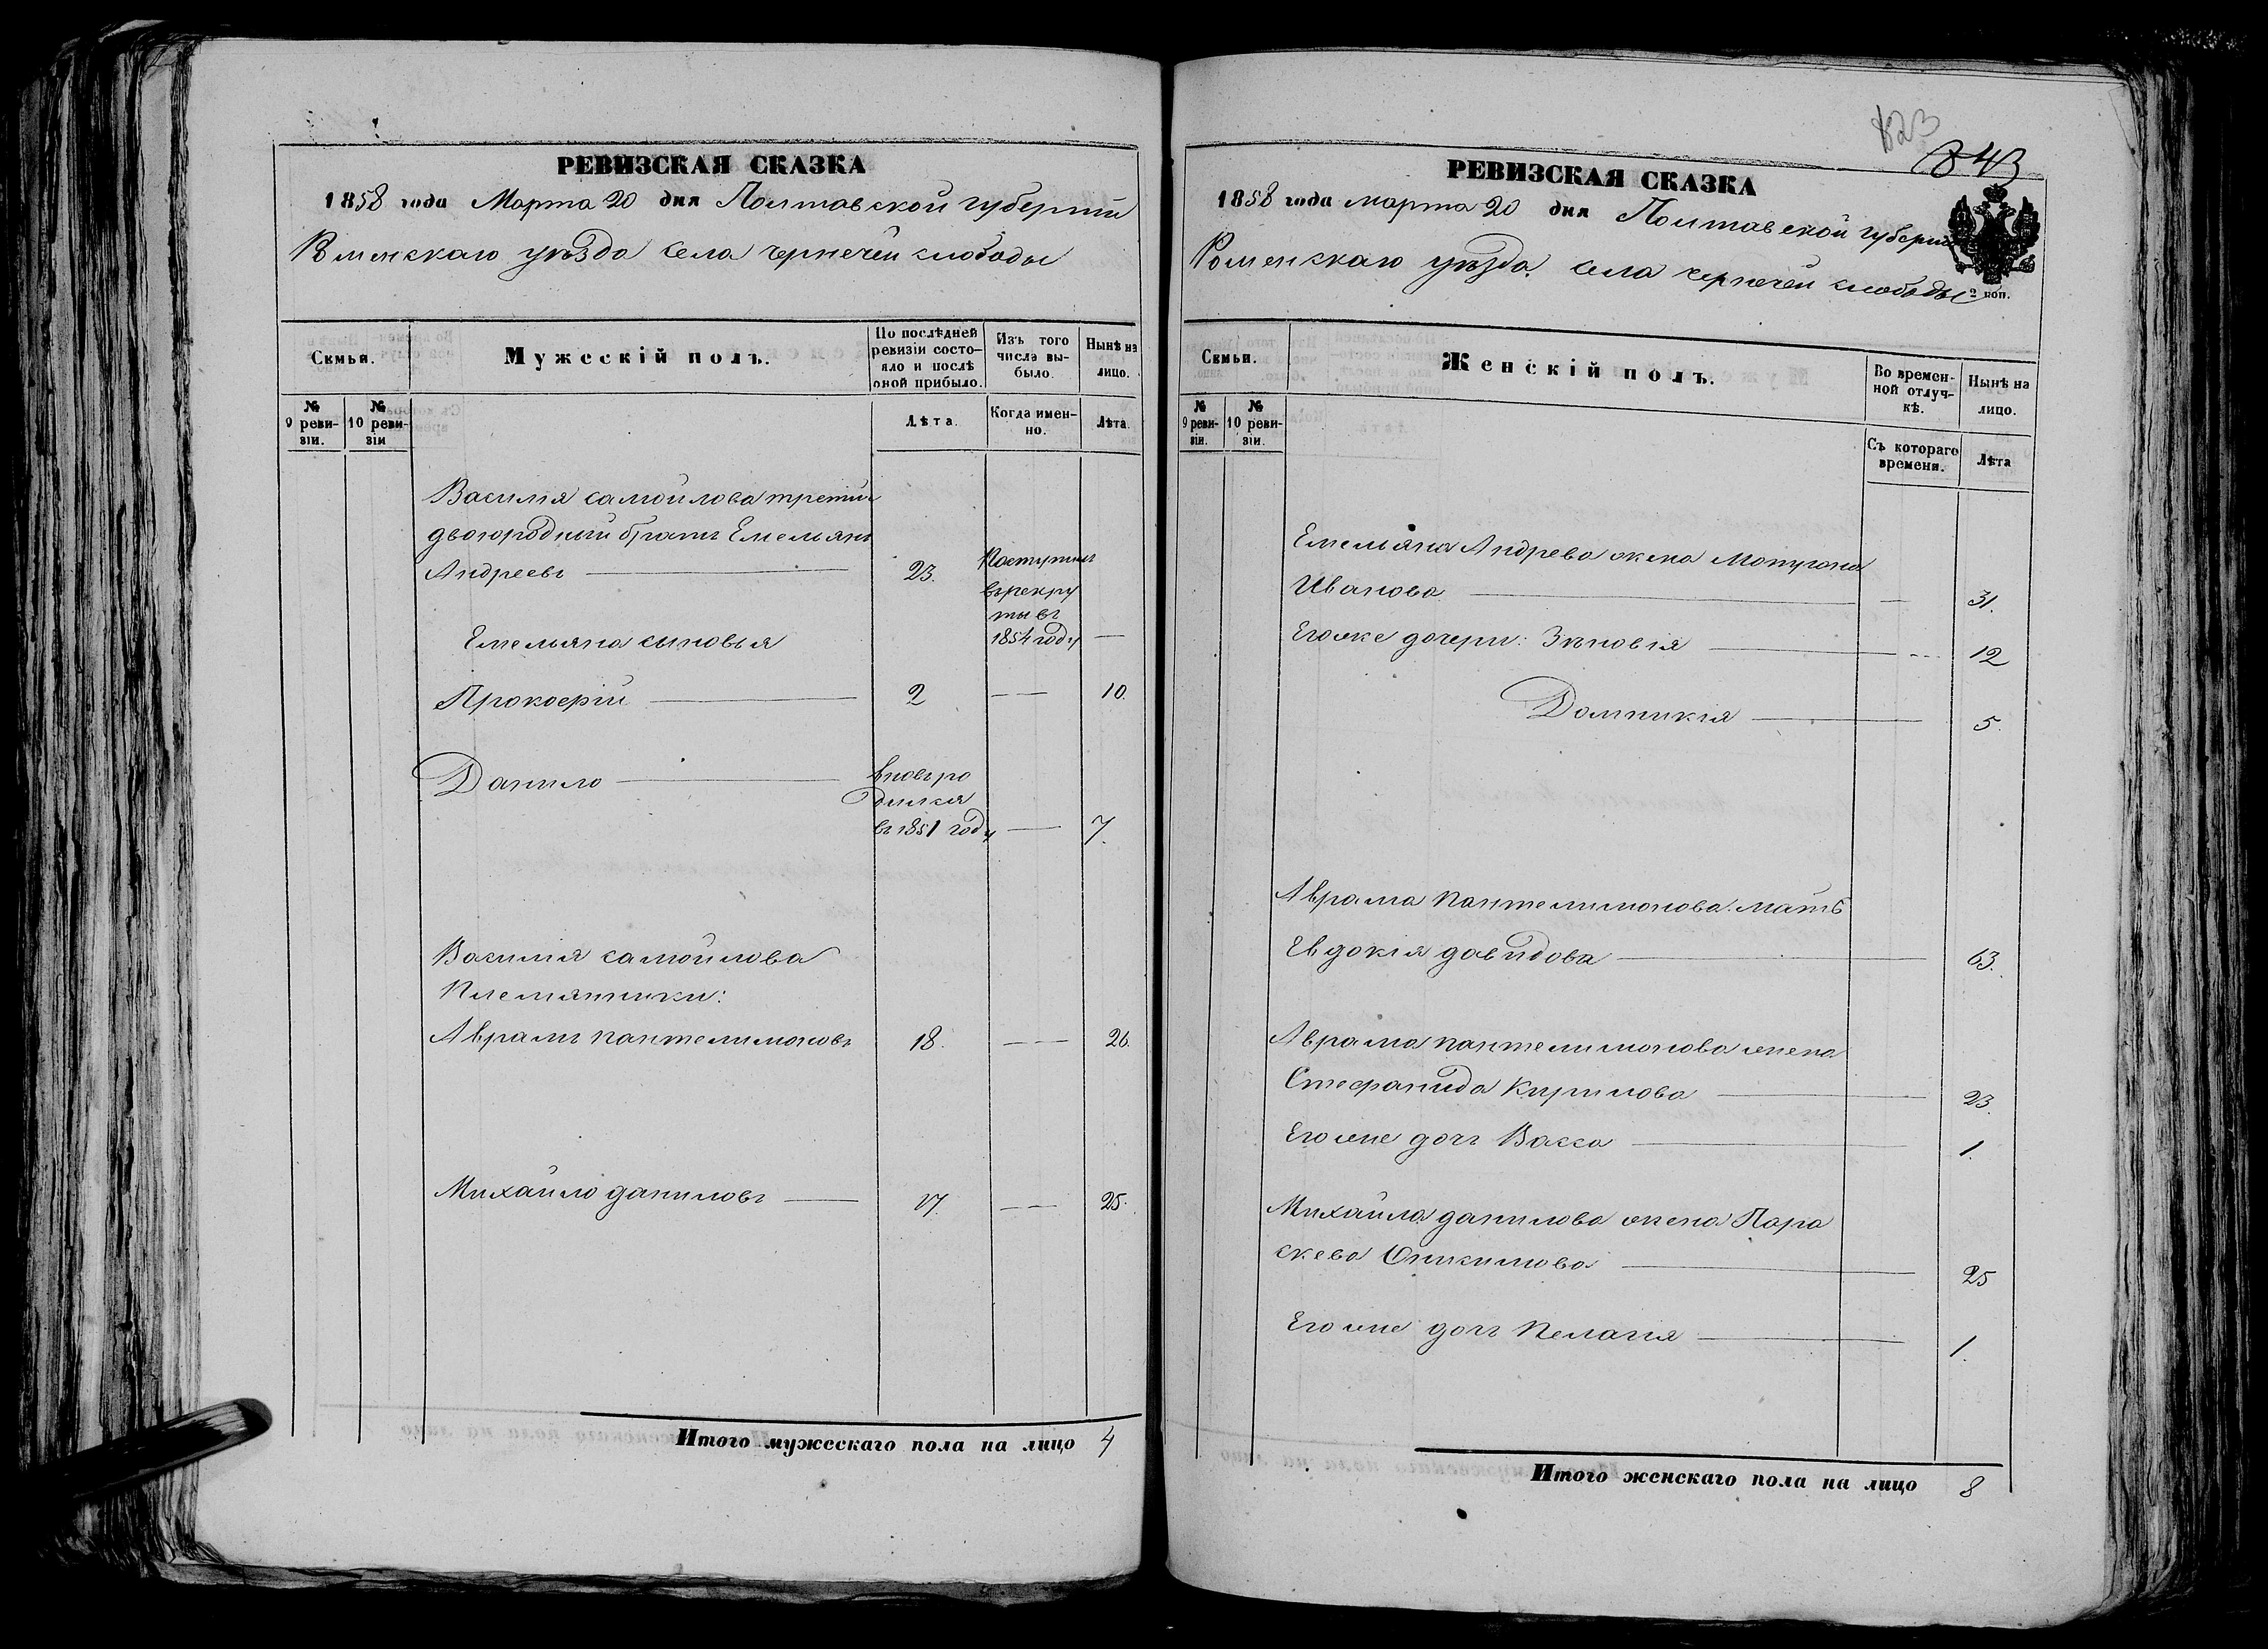 РЕВИЗСКАЯ СКАЗКА
1858 года Марта 20 дня Полтавской губернии
Роменскаго уѣзда села чернечей слободы
Семьи.
Мужескій полъ.
По послѣдней ревизіи состояло и послѣ оной прибыло.
Изъ того числа выбыло.
Нынѣ на лицо.
№ 9 ревизіи.
№ 10 ревизіи
Лѣта.
Когда именно.
Лѣта.
Василія самойлова третій
двоюродный братъ Емельянъ
Андреевъ 23. Поступилъ
въ рекру
ты въ
1854 году —
Емельяна сыновья
Прокофій 2 — 10.
Данило вновь ро
дился
въ 1851 году — 7.
Василія самойлова
Племянники:
Аврамъ пантелимоновъ 18. — 26.
Михайло даниловъ 17. — 25.
Итого мужескаго пола на лицо 4
823
843
РЕВИЗСКАЯ СКАЗКА
1858 года марта 20 дня Полтавской губерніи
Роменскаго уѣзда села чернечей слободы
2 коп.
Семьи.
Женскій полъ.
Во временной отлучкѣ.
Нынѣ на лицо.
№ 9 ревизіи.
№ 10 ревизіи.
Съ котораго времени.
Лѣта
Емельяна Андрева жена Мотрона
Иванова — 31.
Егоже дочери: Зѣновія — 12
Домникія — 5.
Аврама пантелимонова мать
Евдокія давидова — 63.
Аврама пантелимонова жена
Стефанида Кирилова — 23.
Егоже дочъ Васса — 1.
Михайла данилова жена Пара
скева — 25
Егоже дочъ Пелагія — 1.
Итого женскаго пола на лицо 8